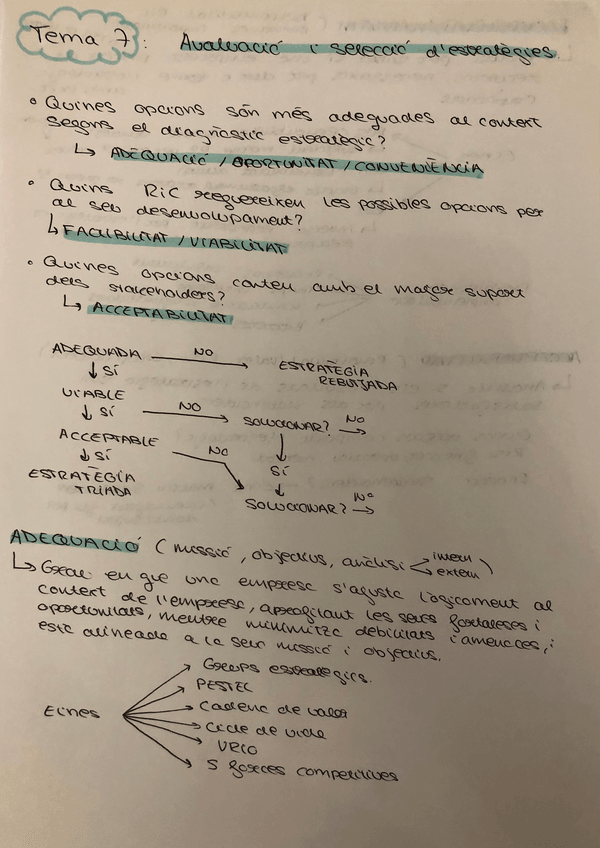 Tema 7: Avaluació i selecció d'estratègies.
• Quines opcions són més adequades al context
segons el diagnòstic estratègic?
↳ ADEQUACIÓ / OPORTUNITAT / CONVENIÈNCIA
• Quins RiC requereixen les possibles opcions per
al seu desenvolupament?
↳ FACIBILITAT / VIABILITAT
• Quines opcions conten amb el major suport
dels stakeholders?
↳ ACCEPTABILITAT
ADEQUADA NO → ESTRATÈGIA
REBUTJADA
↓ SÍ
VIABLE
↓ SÍ NO → SOLUCIONAR? NO →
ACCEPTABLE NO
↓ SÍ ↓ SÍ
ESTRATÈGIA
TRIADA
SOLUCIONAR? NO →
ADEQUACIÓ (missió, objectius, anàlisi intern
extern)
↳ Grau en que una empresa s'ajusta lògicament al
context de l'empresa, aprofitant les seues fortaleses i
oportunitats, mentre minimitza debilitats i amenaces, i
este alineada a la seu missió i objectius.
Grups estratègics.
PESTEL
Cadena de valor
Eines
Cicle de vida
VRIO
5 forces competitives